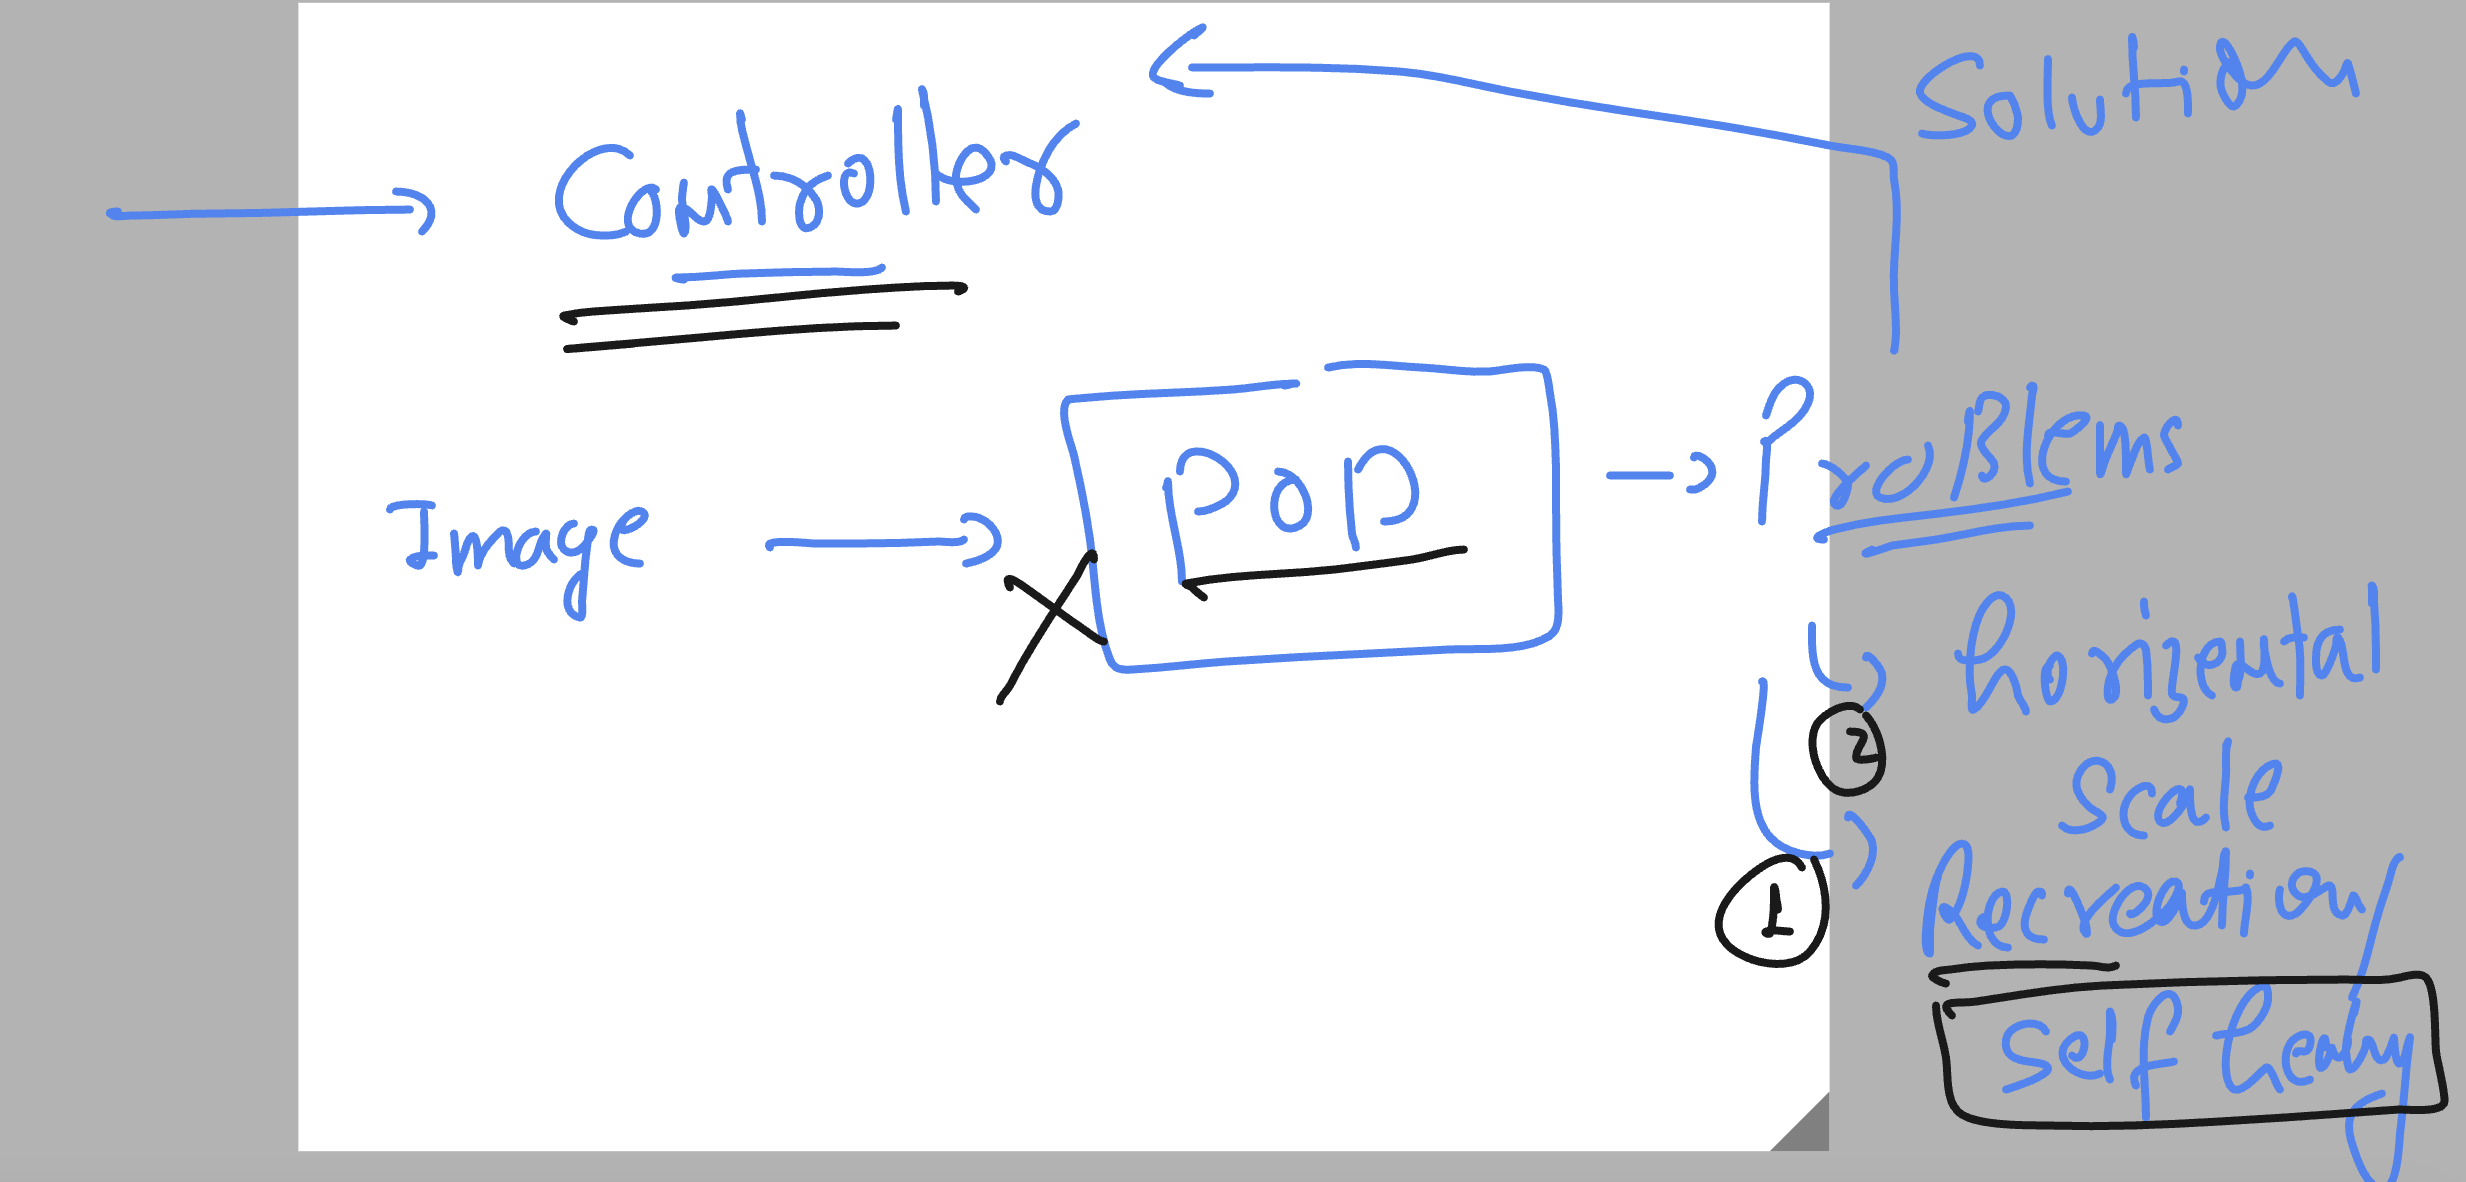 Solution
Controller
Image
POD
ProBlems
horizental
Scale
2
Recreation/
1
Self healing